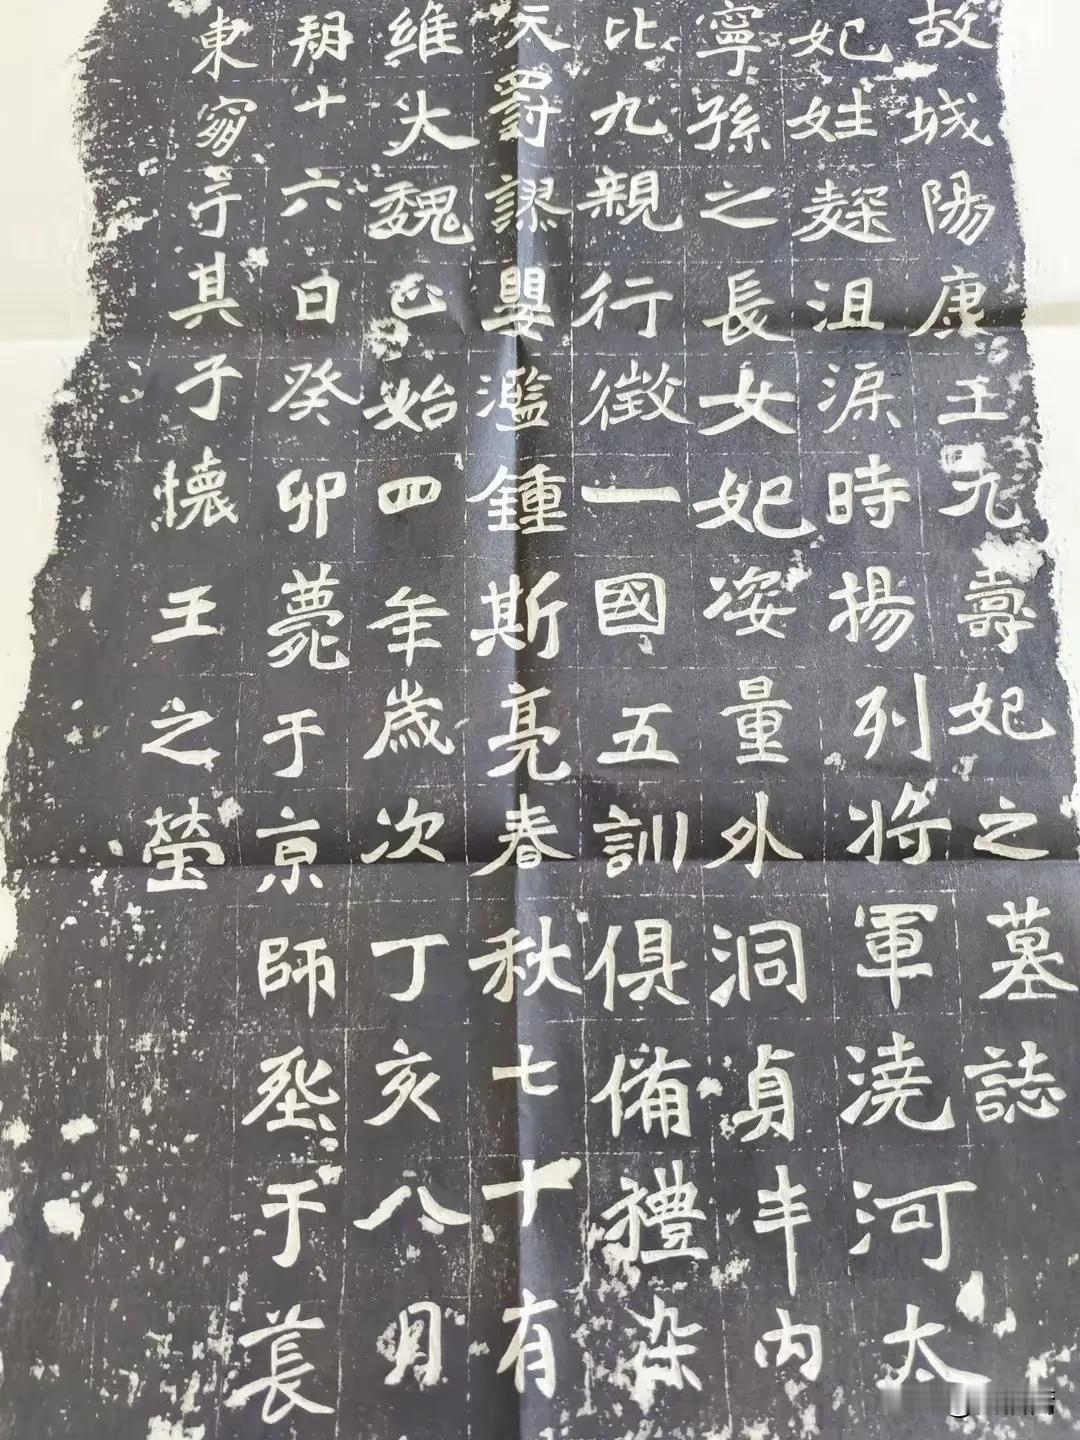 故城陽康王元壽妃之墓誌
妃姓麴沮時揚列將軍澆河太
寧孫之長女妃姿量外洞貞丰內
比九親行徵一國五訓俱備禮染
天爵謬嬰濫鍾斯亮春秋七十有
維大魏正始四年歲次丁亥八月
朔十六日癸卯薨于京師于長
東于其子懷王之瑩